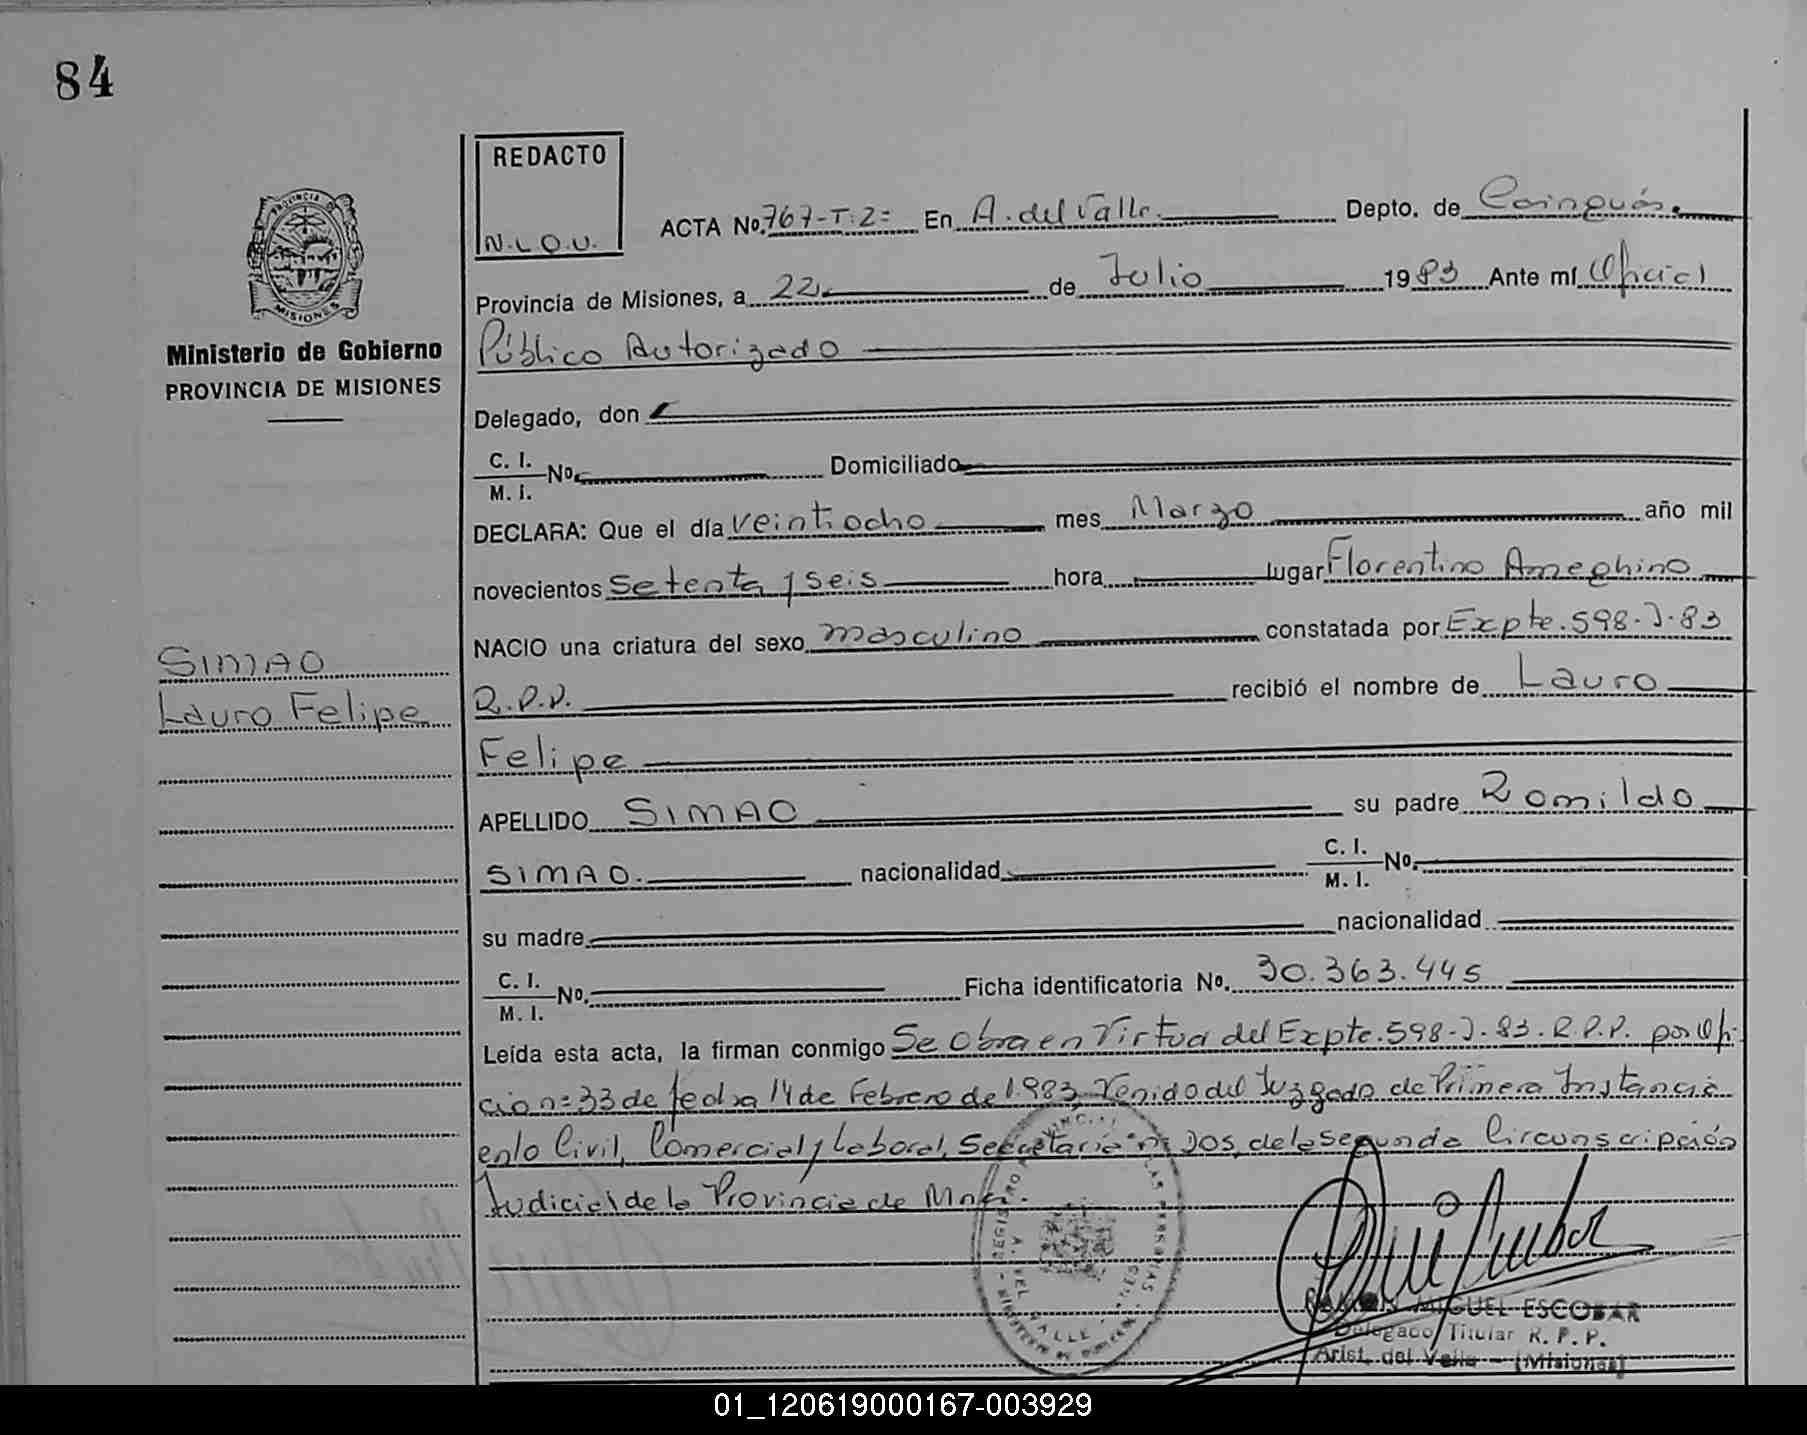 84
REDACTO
N.L.O.U.
ACTA No. 767-T:2= En A. del Valle. Depto. de Cainguás.
Provincia de Misiones, a 22 de Julio 1983 Ante mí Oficial
Público Autorizado
Delegado, don
C. I.
M. I. No. Domiciliado
DECLARA: Que el día veintiocho mes Marzo año mil
novecientos setenta y seis hora lugar Florentino Ameghino
NACIO una criatura del sexo masculino constatada por Expte. 598-J-83
R.P.P. recibió el nombre de Lauro
Felipe
APELLIDO SIMAO su padre Romildo
SIMAO. nacionalidad C. I.
M. I. No.
su madre nacionalidad
C. I.
M. I. No. Ficha identificatoria No. 30.363.445
Leída esta acta, la firman conmigo Se Obra en Virtud del Expte. 598-J-83. R.P.P. por Ofi-
cio n= 33 de fecha 14 de Febrero de 1.983, Venido del Juzgado de Primera Instancia
en lo Civil, Comercial y Laboral, Secretaria n= Dos, de la Segunda Circunscripción
Judicial de la Provincia de Mnes.
RAMON MIGUEL ESCOBAR
Delegado Titular R. P. P.
Arist. del Valle - (Misiones)
PROVINCIA DE
MISIONES
Ministerio de Gobierno
PROVINCIA DE MISIONES
SIMAO
Lauro Felipe
A. DEL VALLE
01_120619000167-003929